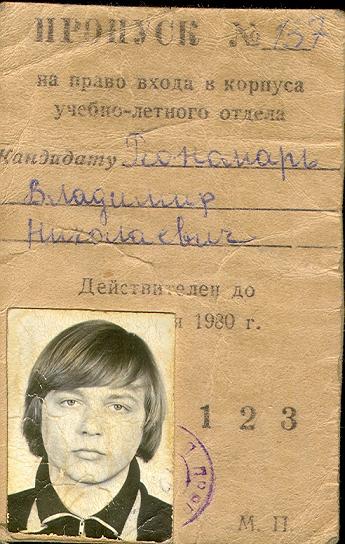 ПРОПУСК № 157
на право входа в корпуса
учебно-летного отдела
Кандидату Пономарь
Владимир
Николаевич
Действителен до
я 1980 г.
1 2 3
М. П.